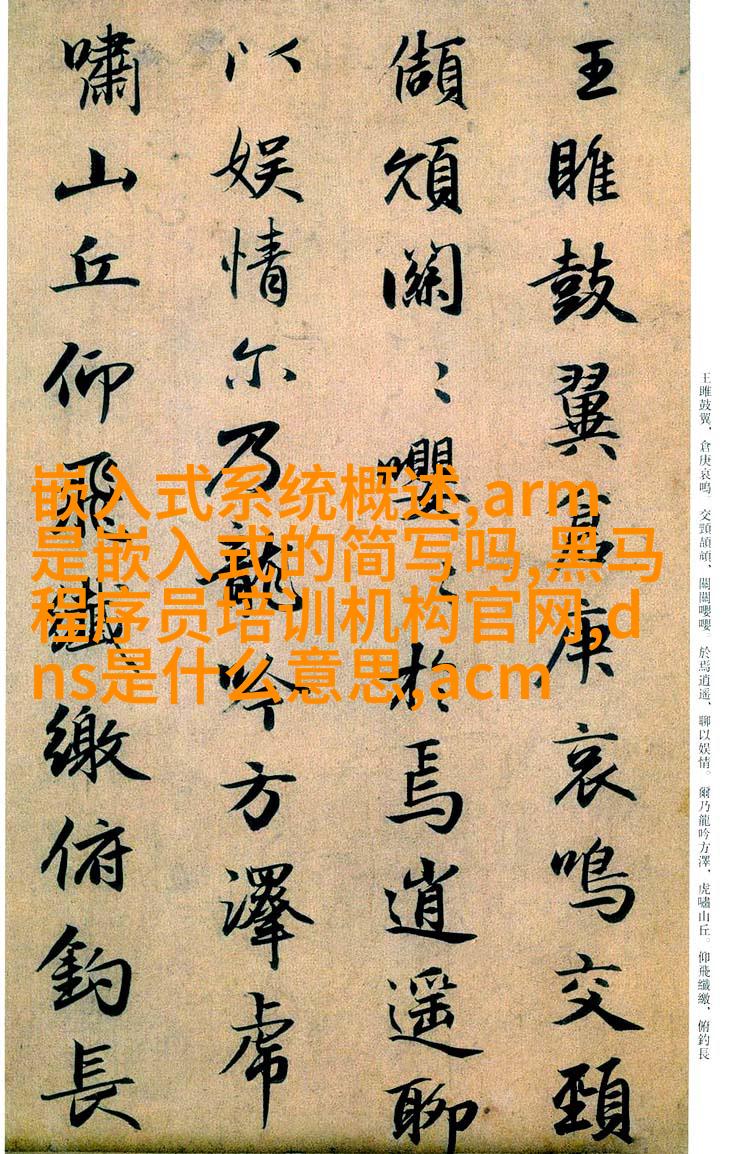 王雎鼓翼倉庚哀鳴交頸
頡頏關〻嚶〻於焉逍遥聊
以娱情尔乃龍吟方澤虎
嘯山丘仰飛纖繳俯釣長
王雎鼓翼、倉庚哀鳴。交頸頡頏、關關嚶嚶。於焉逍遥、聊以娱情。爾乃龍吟方澤、虎嘯山丘。仰飛纖繳、俯釣長
嵌入式系统概述,arm
是嵌入式的简写吗,黑马
程序员培训机构官网,d
ns是什么意思,acm